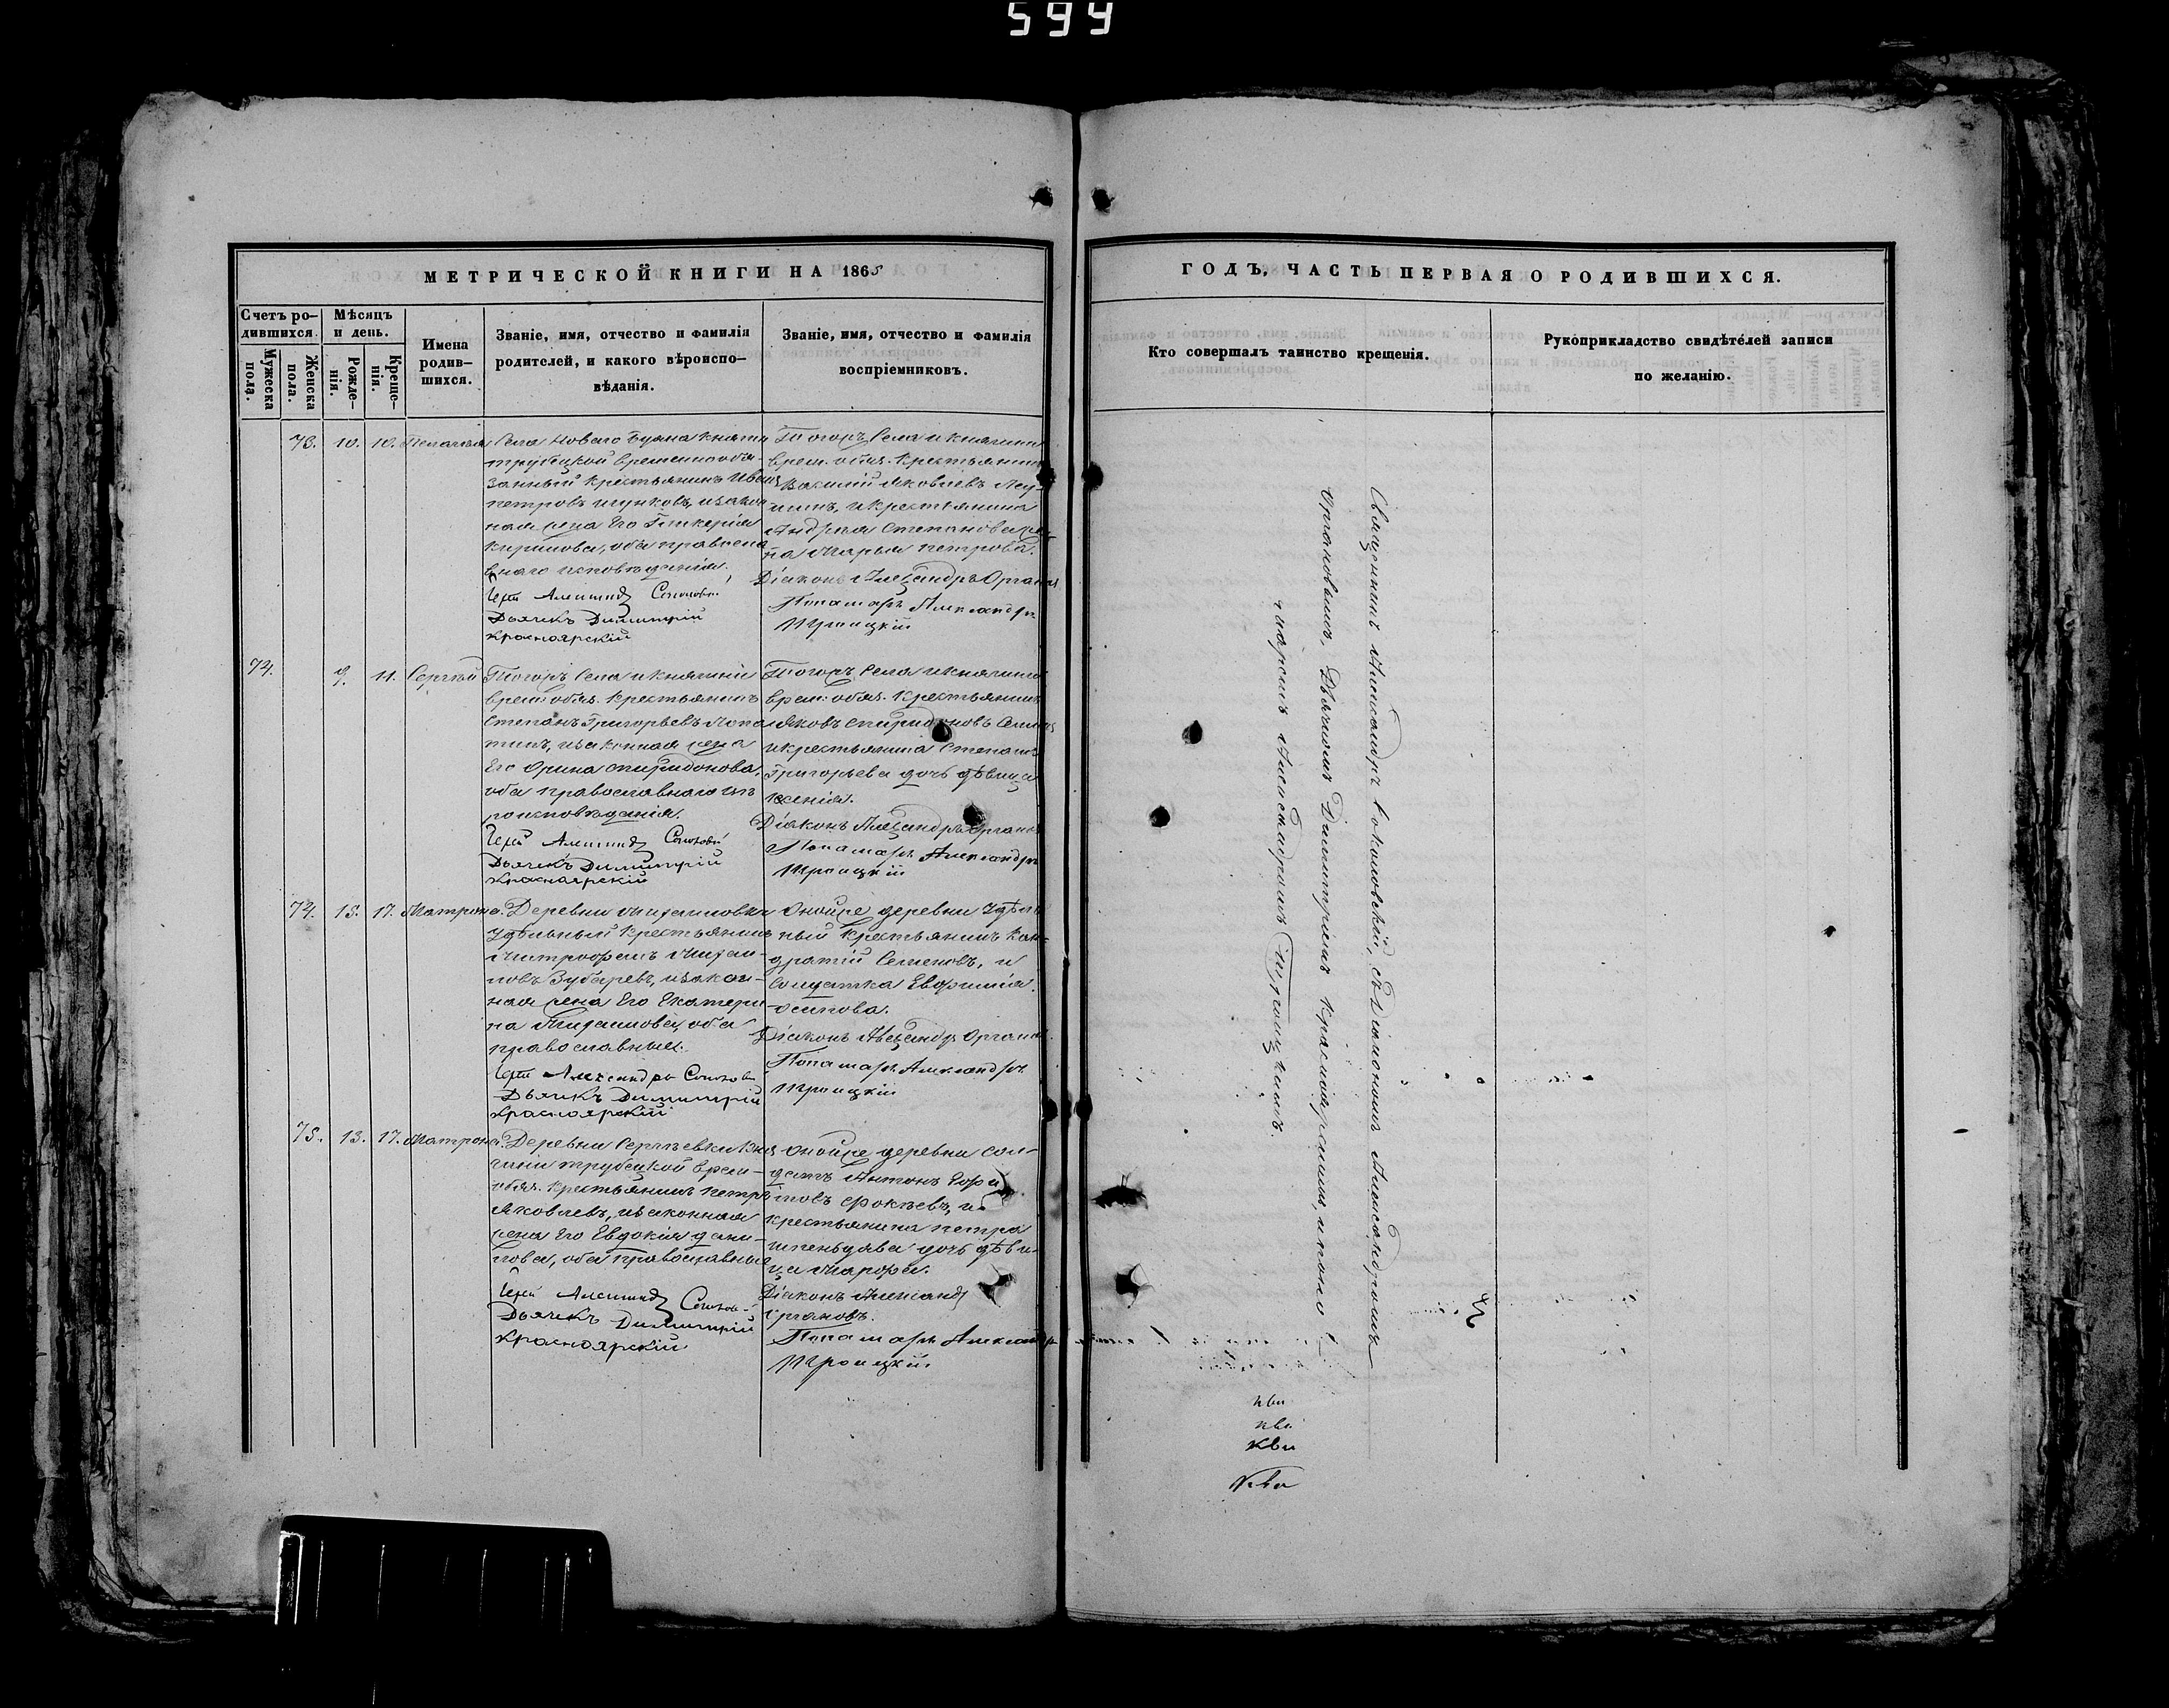 599
МЕТРИЧЕСКОЙ КНИГИ НА 1865
Счетъ ро-
дившихся.
Мужеска
пола.
Женска
пола.
Мѣсяцъ
и день.
Рожде-
нія.
Креще-
нія.
Имена
родив-
шихся.
Званіе, имя, отчество и фамилія
родителей, и какого вѣроиспо-
вѣданія.
Званіе, имя, отчество и фамилія
воспріемниковъ.
73. 10. 10. Пелагея
Села Новаго Буяна Княгини
трубецкой временнообя-
занный крестьянинъ Иванъ
петровъ
ная жена Его Гликерія
Кирилова, оба правосла
внаго исповѣданія.
Іерей Александръ Соколовскій
Дьячекъ Димитрій
Красноярскій
Тогоръ Села и княгини
врем. обяз. Крестьянинъ
Василій Яковлевъ
и крестьянина
Андрея Степанова
Марья петрова.
Діаконъ Александръ Органовъ
Пономарь Александръ
Троицкій
74. 9. 11. Сергѣй
Тогоръ Села и княгини
врем. обяз. Крестьянинъ
Степанъ Григорьевъ
законная жена
Его Орина спиридонова,
оба православнаго вѣ
роисповѣданія.
Іерей Александръ Соколовскій
Дьячекъ Димитрій
Красноярскій
Тогоръ Села и княгини
врем. обяз. Крестьянинъ
Яковъ спиридоновъ
и крестьянина Степана
Григорьева дочь дѣвица
Ксенія.
Діаконъ Александръ Органовъ
Пономарь Александръ
Троицкій
74. 15. 17. Матрона.
Деревни Михайловки
Удѣльный крестьянинъ
Митрофанъ Михай-
ловъ Зубаревъ, и закон-
ная жена Его Екатери
на оба
православные.
Іерей Александръ Соколовскій
Дьячекъ Димитрій
Красноярскій
Оной же деревни Удѣль
ный крестьянинъ Кон-
дратій Семеновъ, и
Солдатка Евфимія
осипова.
Діаконъ Александръ Органовъ.
Пономарь Александръ
Троицкій
75. 13. 17. Матрона.
Деревни Сергѣевки Кня
гини трубецкой врем-
обяз. Крестьянинъ петръ
Яковлевъ, и законная
жена Его Евдокія дани-
лова, оба православные
Іерей Александръ Соколовскій
Дьячекъ Димитрій
Красноярскій
Оной же деревни сол-
датъ Антонъ Ефи
мовъ Фокѣевъ, и
крестьянина петра
дочь дѣви-
ца Марфа.
Діаконъ Александръ
Органовъ.
Пономарь Александръ
Троицкій
ГОДЪ, ЧАСТЬ ПЕРВАЯ О РОДИВШИХСЯ.
Кто совершалъ таинство крещенія.
Рукоприкладство свидѣтелей записи
по желанію.
Священникъ Александръ Соколовскій, съ Діакономъ Александромъ
Органовымъ, Дьячкомъ Димитріемъ Красноярскимъ, и поно
маремъ Александромъ Троицкимъ.